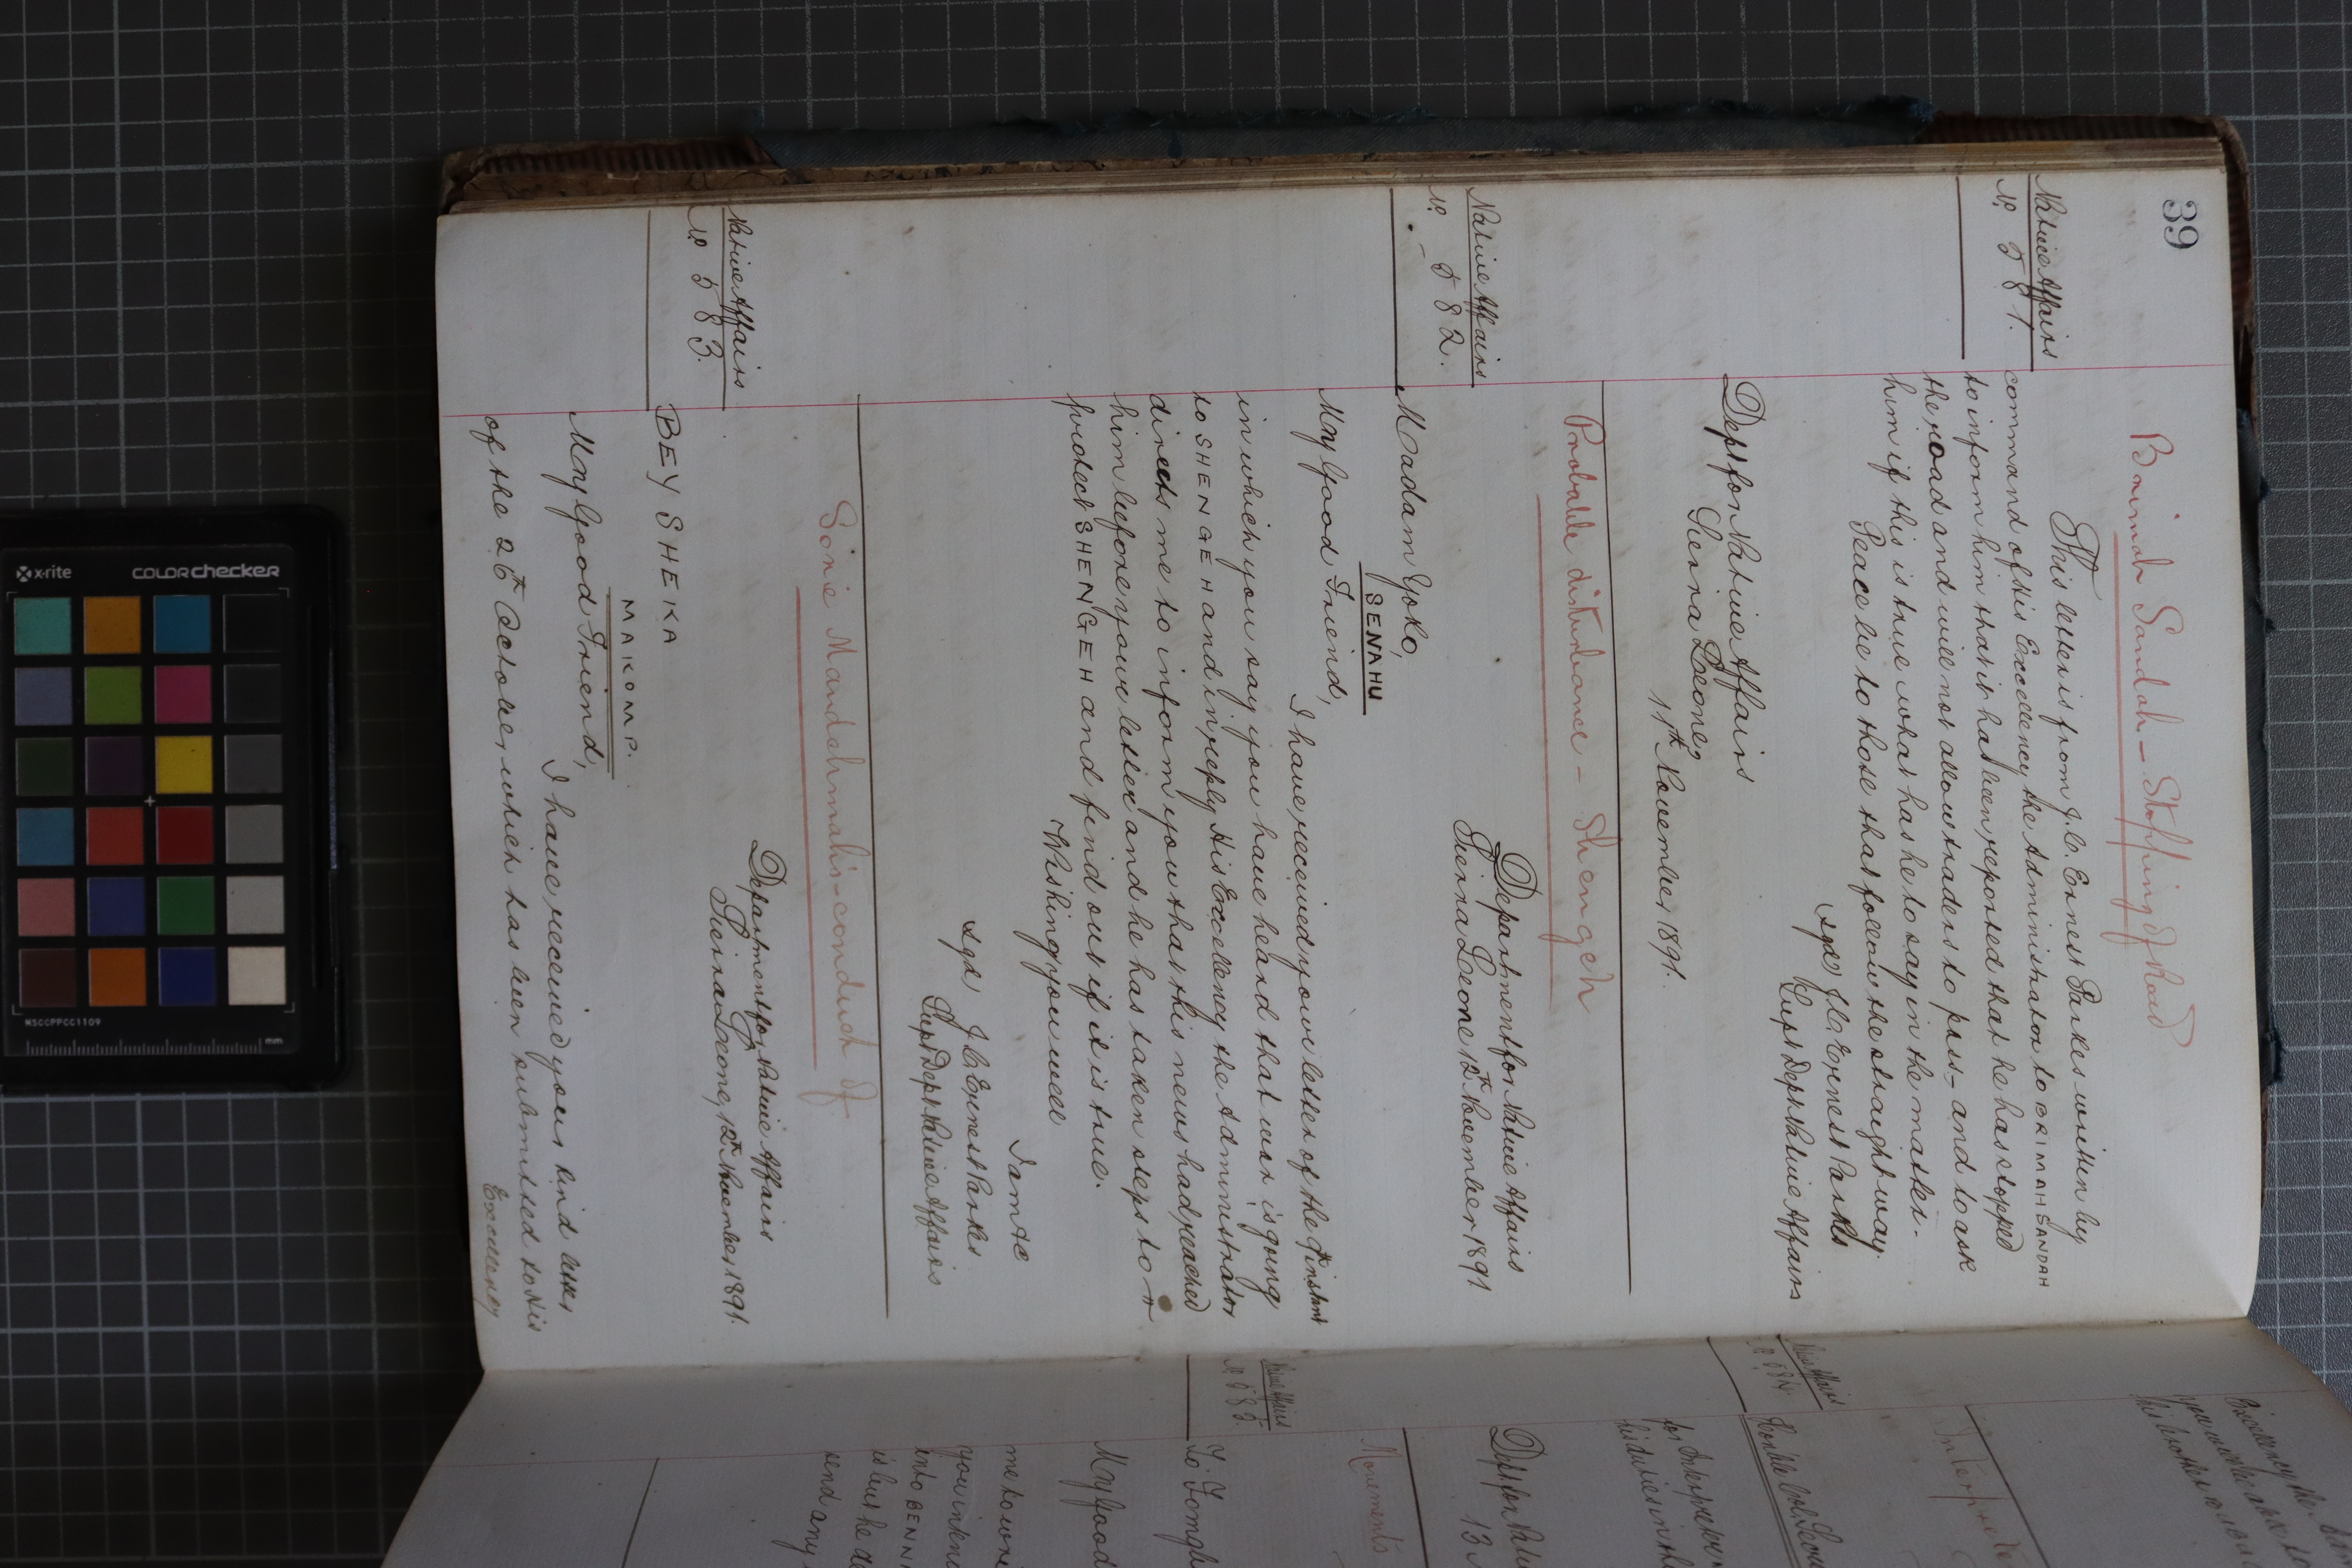 39
Brimah Sandah - Stopping of Road
Native Affairs
No 581.
This letter is from J. C. Ernest Parkes written by
command of His Excellency the Administrator to BRIMAH SANDAH
to inform him that it has been reported that he has stopped
the road and will not allow traders to pass - and to ask
him if this is true what has he to say in the matter.-
Peace be to those that follow the straight way
sgd/ J. C. Ernest Parkes
Supt Dept Native Affairs
Dept for Native Affairs
Sierra Leone,
11th November 1891.
Probable disturbance - Shengeh
Native Affairs
No - 582.
Department for Native Affairs
Sierra Leone 12th November 1891
Madam Yoko,
SENAHU
My Good Friend,
I have received your letter of the 9th instant
in which you say you have heard that war is going
to SHENGEH and in reply His Excellency the Administrator
directs me to inform you that this news had reached
him before your letter and he has taken steps to
protect SHENGEH and find out if it is true.
Wishing you well
I am &c
sgd J C Ernest Parkes.
Supt Dept Native Affairs
Sorie Mandahmah's - conduct of
Native Affairs
No 583.
Department for Native Affairs
Sierra Leone, 12th November 1891.
BEY SHEKA
MAKOMP.
My Good Friend,
I have received your kind letter
of the 26th October which has been submitted to His
Excellency
Excellency the
Native Affairs
No 584.
for Interpreter
his duties in th
Dept for Nati
13
Movements
Native Affairs
No 585.
My Good
me to
into BENN
send any
x-rite
COLORchecker
MSCCPPCC1109
mm